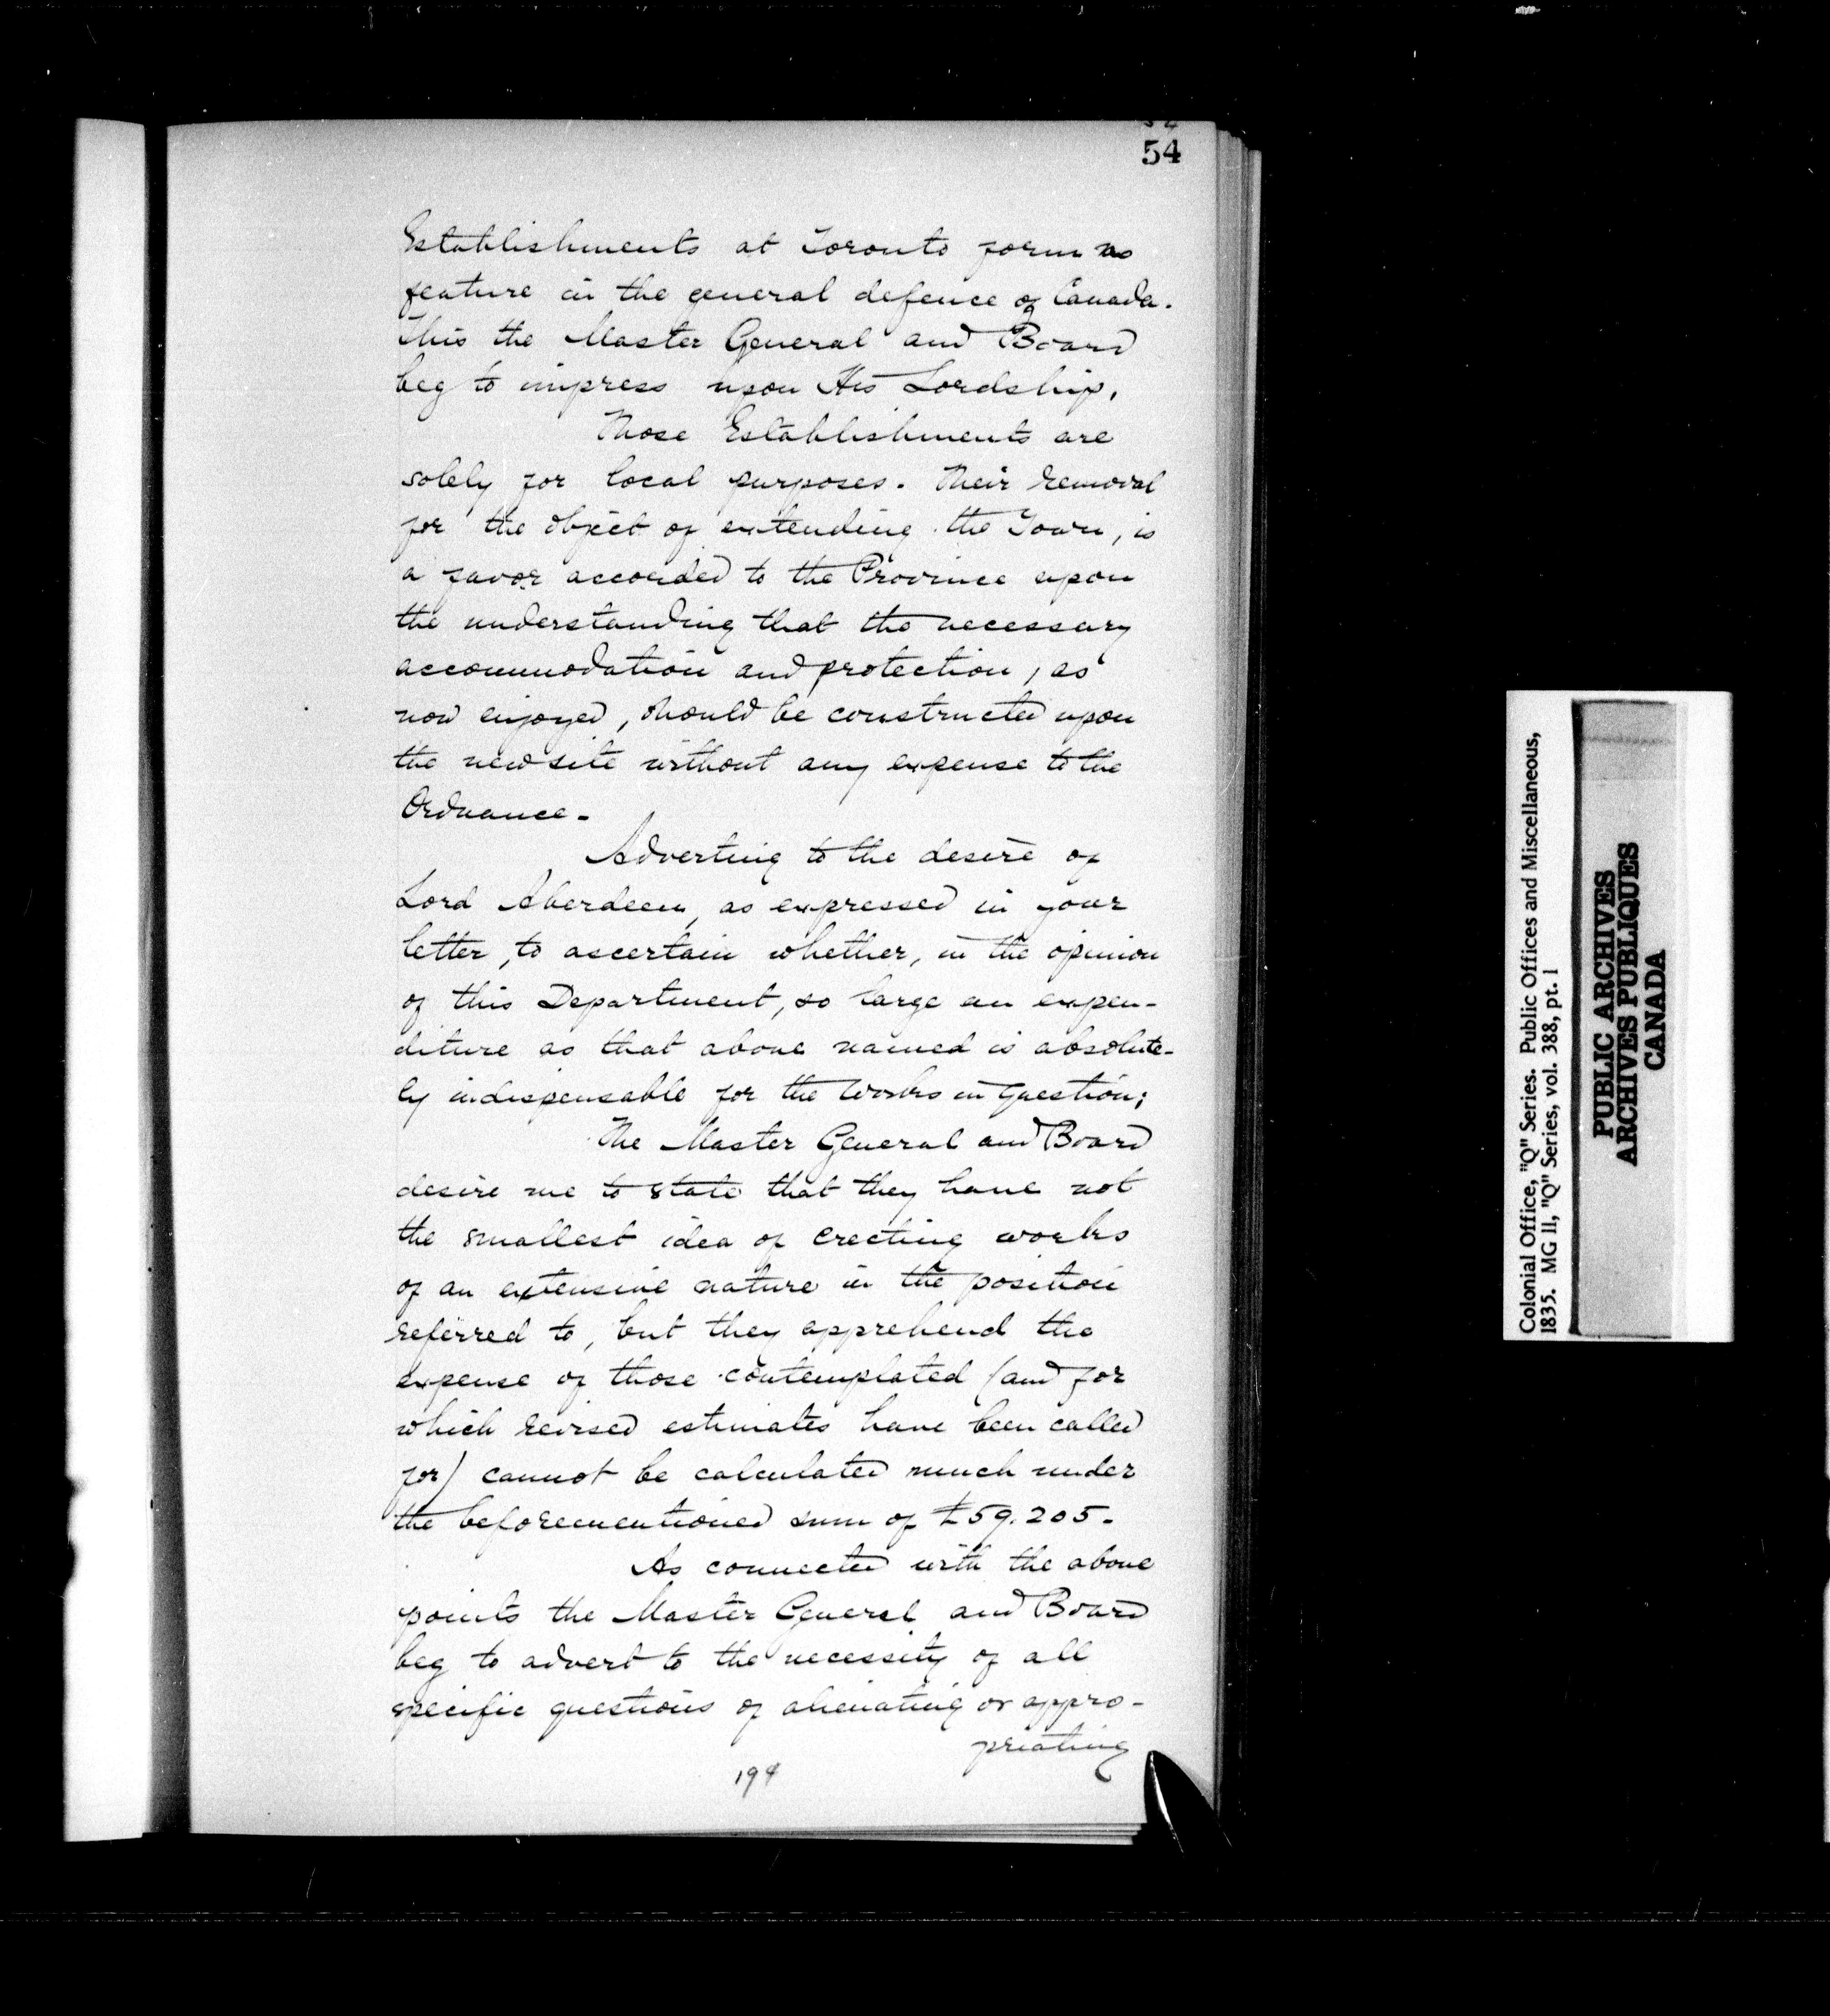 54
Establishments at Toronto form no
feature in the general defence of Canada.
This the Master General and Board
beg to impress upon His Lordship,
Those Establishments are
solely for local purposes. Their removal
for the object of extending the Town, is
a favor accorded to the Province upon
the understanding that the necessary
accommodation and protection, as
now enjoyed, should be constructed upon
the new site without any expense to the
Ordnance -
Adverting to the desire of
Lord Aberdeen, as expressed in your
letter, to ascertain whether, in the opinion
of this Department, so large an expen-
diture as that above named is absolute-
ly indispensable for the works in question;
The Master General and Board
desire me to state that they have not
the smallest idea of erecting works
of an extensive nature in the position
referred to, but they apprehend the
expense of those contemplated (and for
which revised estimates have been called
for) cannot be calculated much under
the beforementioned sum of £59.205-
As connected with the above
points the Master General and Board
beg to advert to the necessity of all
specific questions of alienating or appro-
priating
194
Colonial Office, "Q" Series. Public Offices and Miscellaneous,
1835. MG 11, "Q" Series, vol. 388, pt. 1
PUBLIC ARCHIVES
ARCHIVES PUBLIQUES
CANADA